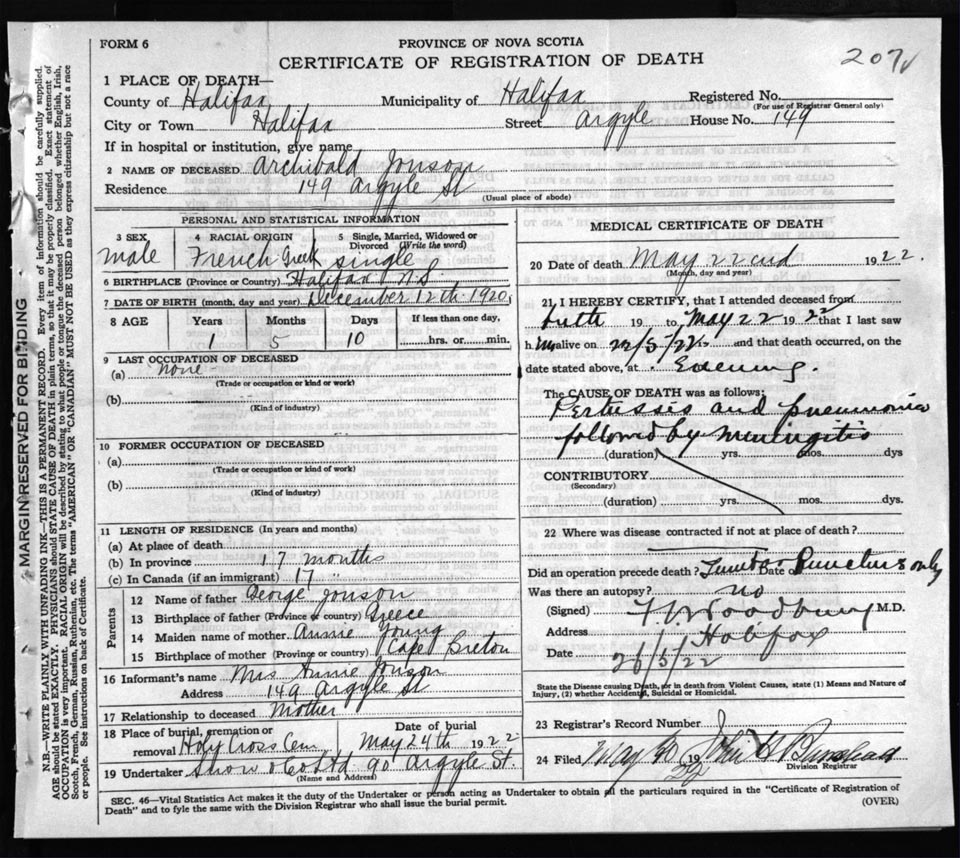 FORM 6
PROVINCE OF NOVA SCOTIA
CERTIFICATE OF REGISTRATION OF DEATH
207
1 PLACE OF DEATH—
County of Halifax Municipality of Halifax Registered No.
(For use of Registrar General only)
City or Town Halifax Street Argyle House No. 149
If in hospital or institution, give name
2 NAME OF DECEASED Archibald Jonson
Residence 149 Argyle St
(Usual place of abode)
PERSONAL AND STATISTICAL INFORMATION
3 SEX 4 RACIAL ORIGIN 5 Single, Married, Widowed or Divorced (Write the word)
male French Greek single
6 BIRTHPLACE (Province or Country) Halifax N.S.
7 DATE OF BIRTH (month, day and year) December 12th 1920
8 AGE Years Months Days If less than one day,
1 5 10 hrs. or min.
9 LAST OCCUPATION OF DECEASED
(a) none
(Trade or occupation or kind of work)
(b)
(Kind of industry)
10 FORMER OCCUPATION OF DECEASED
(a)
(Trade or occupation or kind of work)
(b)
(Kind of industry)
11 LENGTH OF RESIDENCE (In years and months)
(a) At place of death
(b) In province 17 months
(c) In Canada (if an immigrant) 17 "
Parents
12 Name of father George Jonson
13 Birthplace of father (Province or country) Greece
14 Maiden name of mother Annie Young
15 Birthplace of mother (Province or country) Cape Breton
16 Informant's name Mrs Annie Jonson
Address 149 Argyle St
17 Relationship to deceased Mother
18 Place of burial, cremation or removal Holy Cross Cem Date of burial May 24th 1922
19 Undertaker Snow & Co Ltd 90 Argyle St.
(Name and Address)
MEDICAL CERTIFICATE OF DEATH
20 Date of death May 22nd 1922.
(Month, day and year)
21 I HEREBY CERTIFY, that I attended deceased from
19 to May 22 1922 that I last saw
h im alive on 22/5/22 and that death occurred, on
date stated above, at Evening.
The CAUSE OF DEATH was as follows:
Pertussis and pneumonia
followed by Meningitis
(duration) yrs. mos. dys
CONTRIBUTORY
(Secondary)
(duration) yrs. mos. dys.
22 Where was disease contracted if not at place of death?
Did an operation precede death? Lumbar Date Punctures only
Was there an autopsy? no
(Signed) Woodbury M.D.
Address Halifax
Date 26/5/22
State the Disease causing Death, or in death from Violent Causes, state (1) Means and Nature of Injury, (2) whether Accidental, Suicidal or Homicidal.
23 Registrar's Record Number
24 Filed, May 30 1922 John
Division Registrar
SEC. 46—Vital Statistics Act makes it the duty of the Undertaker or person acting as Undertaker to obtain all the particulars required in the "Certificate of Registration of
Death" and to fyle the same with the Division Registrar who shall issue the burial permit.
(OVER)
MARGIN RESERVED FOR BINDING
N.B.—WRITE PLAINLY WITH UNFADING INK—THIS IS A PERMANENT RECORD. Every item of information should be carefully supplied.
AGE should be stated EXACTLY. PHYSICIANS should STATE CAUSE OF DEATH in plain terms, so that it may be properly classified. Exact statement of
OCCUPATION is very important. RACIAL ORIGIN will be described by stating to what people or tongue the deceased person belonged whether English, Irish,
Scotch, French, German, Russian, Ruthenian, etc. The terms "AMERICAN" OR "CANADIAN" MUST NOT BE USED as they express citizenship but not a race
or people. See instructions on back of Certificate.